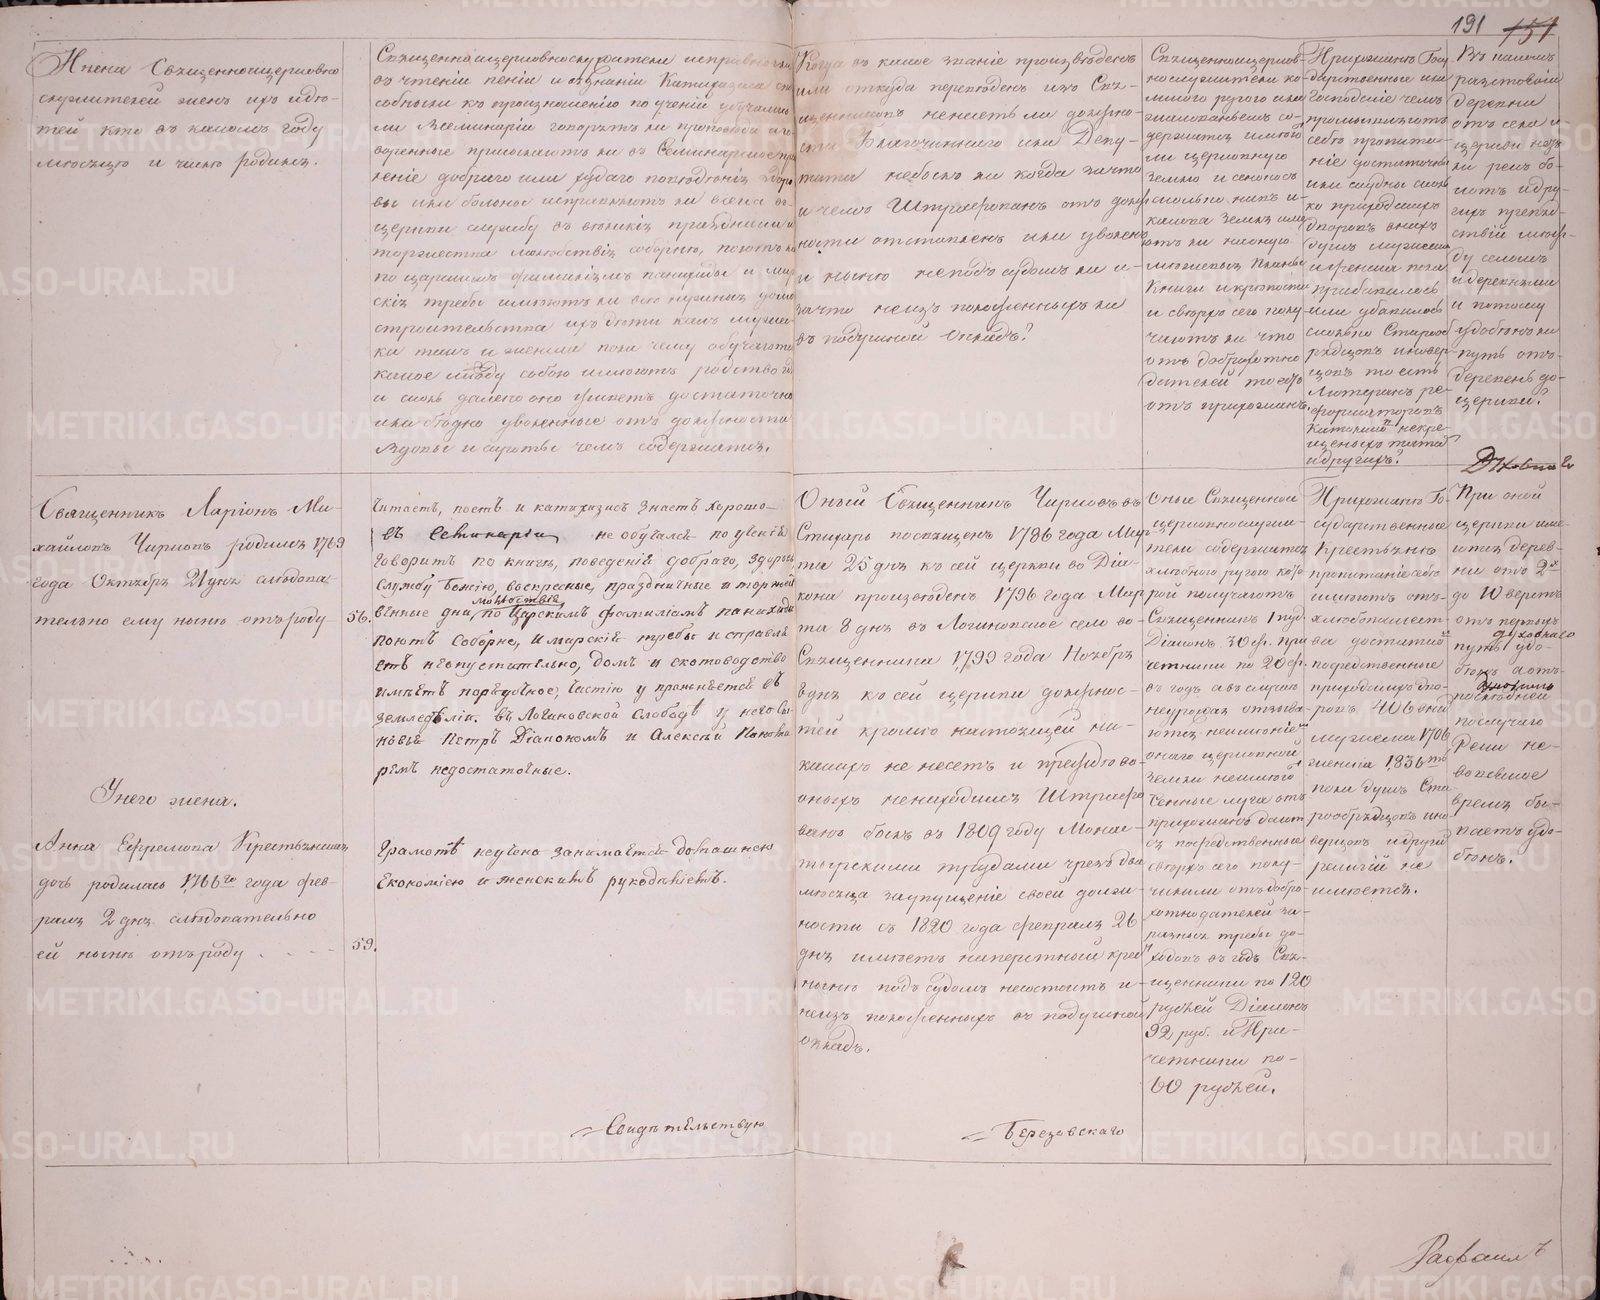 191 151
Имена Священноцерковно
служителей женъ ихъ и дѣ-
тей кто въ какомъ году
мѣсяцѣ и числѣ родился.
Священноцерковнослужители исправны ли
въ чтеніи пеніи и знаніи Катихизиса спо
собны ли къ произношенію поученій обучались
ли въ Семинаріи говорятъ ли проповѣди
присылаютъ ли въ Семинарское прав
леніе добраго или худаго поведенія здоро
вы или больные исправляютъ ли всегда въ
церкви службу въ великія праздники и
торжества молебствія соборнѣ, поютъ ли
по царскимъ фамиліямъ панихиды и мір
скія требы имѣютъ ли всю нужную домо
строительства ихъ дѣти какъ мужес
ка такъ и женска пола чему обучаются
какое между собою имѣютъ родство
и сколь далеко оно живетъ достаточно
или бѣдно уволенные отъ должности
вдовы и сироты чемъ содержатся.
Когда въ какое званіе произведенъ
или откуда переведенъ изъ Свя-
щенниковъ неимѣетъ ли должно-
сти Благочиннаго или Депу-
тата небылъ ли когда за что
и чемъ Штрафованъ отъ долж
ности отставленъ или уволенъ
и нынѣ неподъ судомъ ли и
за что неизъ положенныхъ ли
въ подушной окладъ?
Священноцерков-
нослужители ко-
ликого ругою или
жалованьемъ со-
держатся имѣютъ
ли церковную
землю и сенокосъ
сколько ихъ и
какова земля имѣ
ютъ ли на оную
межевыя Планы
Книги и крѣпости
и сверхъ сего полу
чаютъ ли что
отъ доброхотно
дателей то есть
отъ прихожанъ.
Прихожанѣ Госу
дарственные или
Господскіе чемъ
промышляютъ
себѣ пропита-
ніе достаточны
или скудны сколь
ко приходскихъ
дворовъ въ нихъ
душъ мужеска
и женска пола
прибавилось
или убавилось
сколько Старооб
рядцовъ иновер
цовъ то есть
Лютеранъ ре-
форматоровъ
Католиковъ некре
щеныхъ татаръ
и другихъ?
Въ какомъ
разстояніи
деревни
отъ села и
церкви нѣтъ
ли рекъ бо-
лотъ и дру-
гихъ препят-
ствій между
селомъ
и деревнями
и потому
удобенъ ли
путь отъ
деревень до
церкви?
Священникъ Ларіонъ Ми-
хайловъ Чирковъ родился 1769
года Октября 21 дня слѣдова-
тельно ему нынѣ отъ роду 56.
Читаетъ, поетъ и катихизисъ знаетъ хорошо
въ Семинаріи не обучался поученіе
говоритъ по книгѣ, поведенія добраго, здоровъ
службу Божію, воскресные, праздничные и торжест
венные дни, молебствіе по Царскимъ фамиліямъ панихиды
поютъ Соборне, и мирскія требы исправля
етъ неупустительно, домъ и скотоводство
имѣетъ порядочное, частію упражняется въ
земледѣліи. въ Логиновской Слободѣ у него сы
новья Петръ Діакономъ и Алексѣй Понома
ремъ недостаточные.
Оный Священникъ Чирковъ въ
Стихарь посвященъ 1786 года Мар
та 25 дня къ сей церкви во Діа-
кона произведенъ 1796 года Мар
та 8 дня въ Логиновское село во
Священника 1799 года Ноября
дня къ сей церкви должнос-
тей кромѣ настоящей ни-
какихъ не несетъ и прежде во
оныхъ ненаходился Штрафо
ванъ былъ въ 1809 году Монас-
тырскими трудами чрезъ два
мѣсяца за упущеніе своей долж-
ности съ 1820 года февраля 26
дня имѣетъ наперстный крестъ
нынѣ подъ судомъ несостоитъ и
неизъ положенныхъ въ подушной
окладъ.
Оные Священно
церковнослужи-
тели содержатся
хлѣбною ругою кото
рой получаютъ
Священникъ 1 пуд.
Діаконъ 30 ф. при
четники по 20 ф.
въ годъ а въ случаи
неурожая отзыва
ются неимѣніемъ
онаго церковной
земли неимѣютъ
сенные луга отъ
прихожанъ даютъ
ся посредственные
сверхъ сего полу-
чили отъ добро-
хотнодателей за
разныя требы до-
ходовъ въ годъ Свя-
щенники по 120
рублей Діаконъ
92 руб. и При-
четники по
60 рублей.
Прихожанѣ Го-
сударственные
Крестьянѣ
пропитаніе себѣ
имѣютъ отъ
хлѣбопашест-
ва достаткомъ
посредственные
приходскихъ дво-
ровъ 406 въ нихъ
мужеска 1706
женска 1836
пола душъ Ста
рообрядцовъ ино
верцовъ и другихъ
религій не
имѣется.
При оной
церкви име-
ются дерев-
ни отъ 2х
до 10 верстъ
отъ первыхъ
Духовнаго
путь удо-
бенъ а отъ
последней
по случаю
Реки не-
во всякое
время бы-
ваетъ удо-
бенъ.
У него жена.
Анна Ефремова Крестьянская
дочь родилась 1766го года фев-
раля 2 дня слѣдовательно
ей нынѣ отъ роду . - - - 59.
Грамотѣ неучена занимается домашнею
Економіею и женскимъ рукодѣліемъ.
Свидѣтельствую
Березовскаго